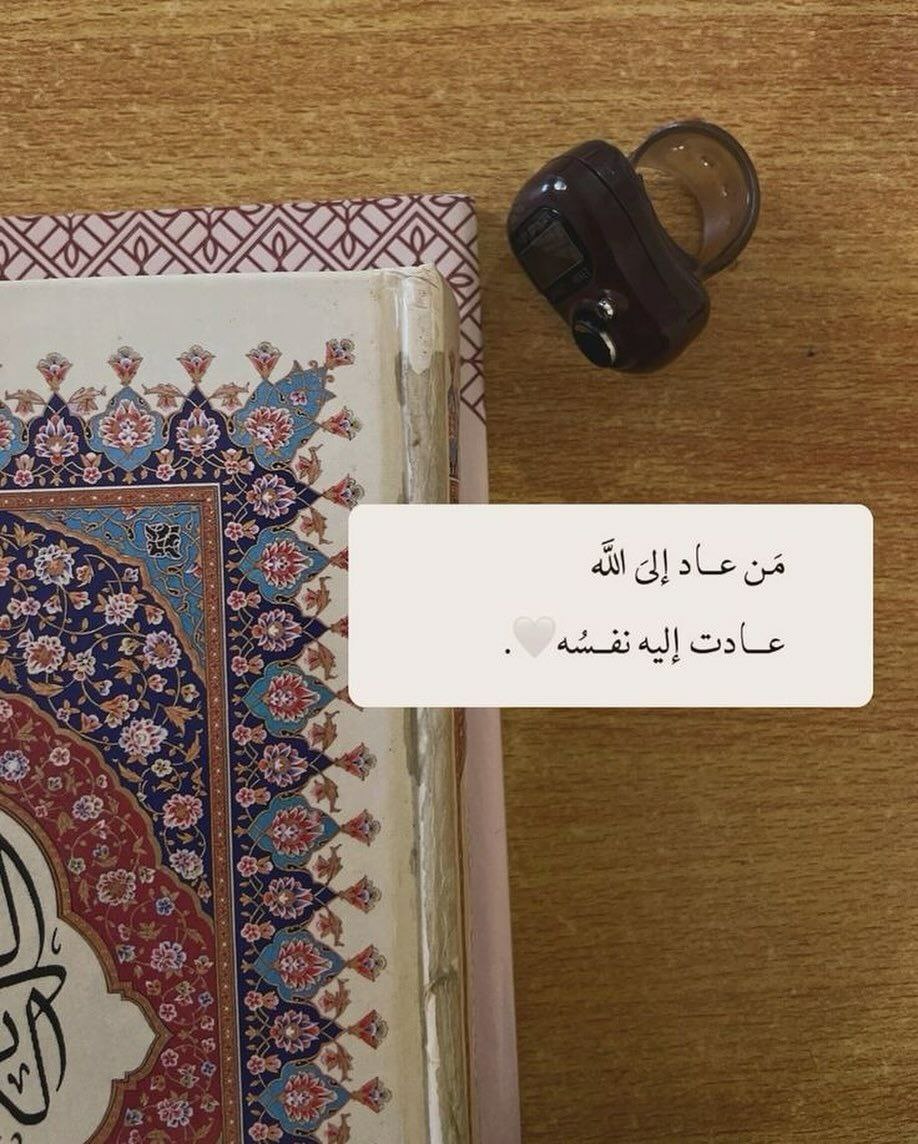 مَن عــاد إلىَ اللَّه
عــادت إليه نفــسُه🤍.